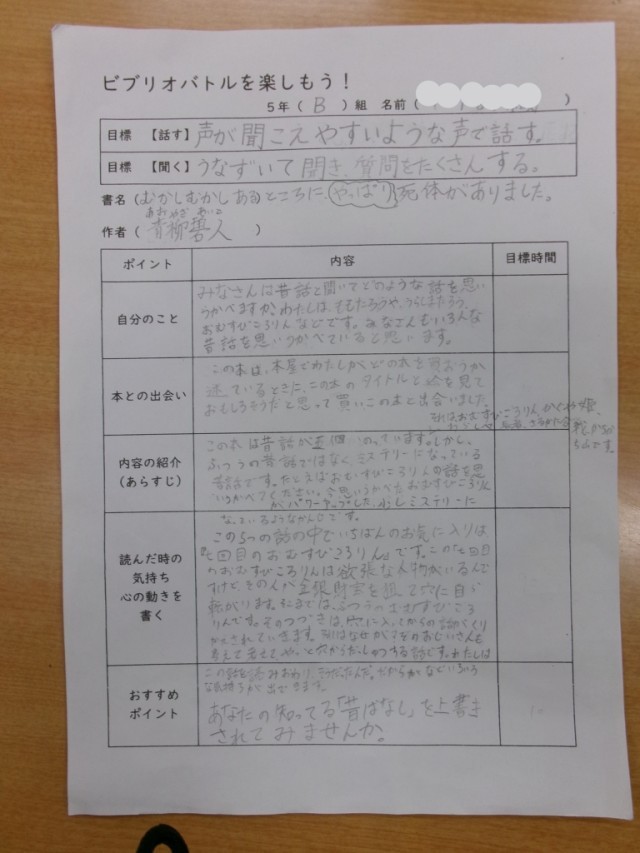 ビブリオバトルを楽しもう！
5年（ B ）組 名前（ ）
目標 【話す】 声が聞こえやすいような声で話す。
目標 【聞く】 うなずいて聞き、質問をたくさんする。
書名（むかしむかしあるところに、やっぱり死体がありました。
あおやぎ あいと
作者（ 青柳碧人 ）
ポイント 内容 目標時間
自分のこと
みなさんは昔話と聞いてどのような話を思い
うかべますか。わたしは、ももたろうや、うらしまたろう、
おむすびころりんなどです。みなさんもいろんな
昔話を思いうかべていると思います。
本との出会い
この本は、本屋でわたしが、どの本を買おうか
迷っているときに、この本のタイトルと絵を見て
おもしろそうだと思って買いこの本と出合いました。
内容の紹介
（あらすじ）
この本は昔話が五個のっています。しかし、
ふつうの昔話ではなく、ミステリーになっている
昔話です。たとえばおむすびころりんの話を思
いうかべてください。今思いうかべたおむすびころりん
がパワーアップした、ミステリーに
なっているようなかんじです。
それは、おむすびころりん、かぐや姫、
読んだ時の
気持ち
心の動きを
書く
この5つの話の中でいちばんのお気に入りは
『七回目のおむすびころりん』です。この七回目
のおむすびころりんは欲張な人物がいるんで
すけど、その人が金銀財宝を狙って穴に自ら
転がります。そこまでは、ふつうのおむすびころ
りんです。そのつづきは、穴に入ってからの話がくり
かえされていきます。それはなぜか？そのおじいさんも
考えて考えて、やっと穴からだっしゅつする話です。わたしは
おすすめ
ポイント
この話を読みおわり、そうだったんだ。だからか。などいろいろ
な気持ちが出てきます。
あなたの知ってる「昔ばなし」を上書き
されてみませんか。